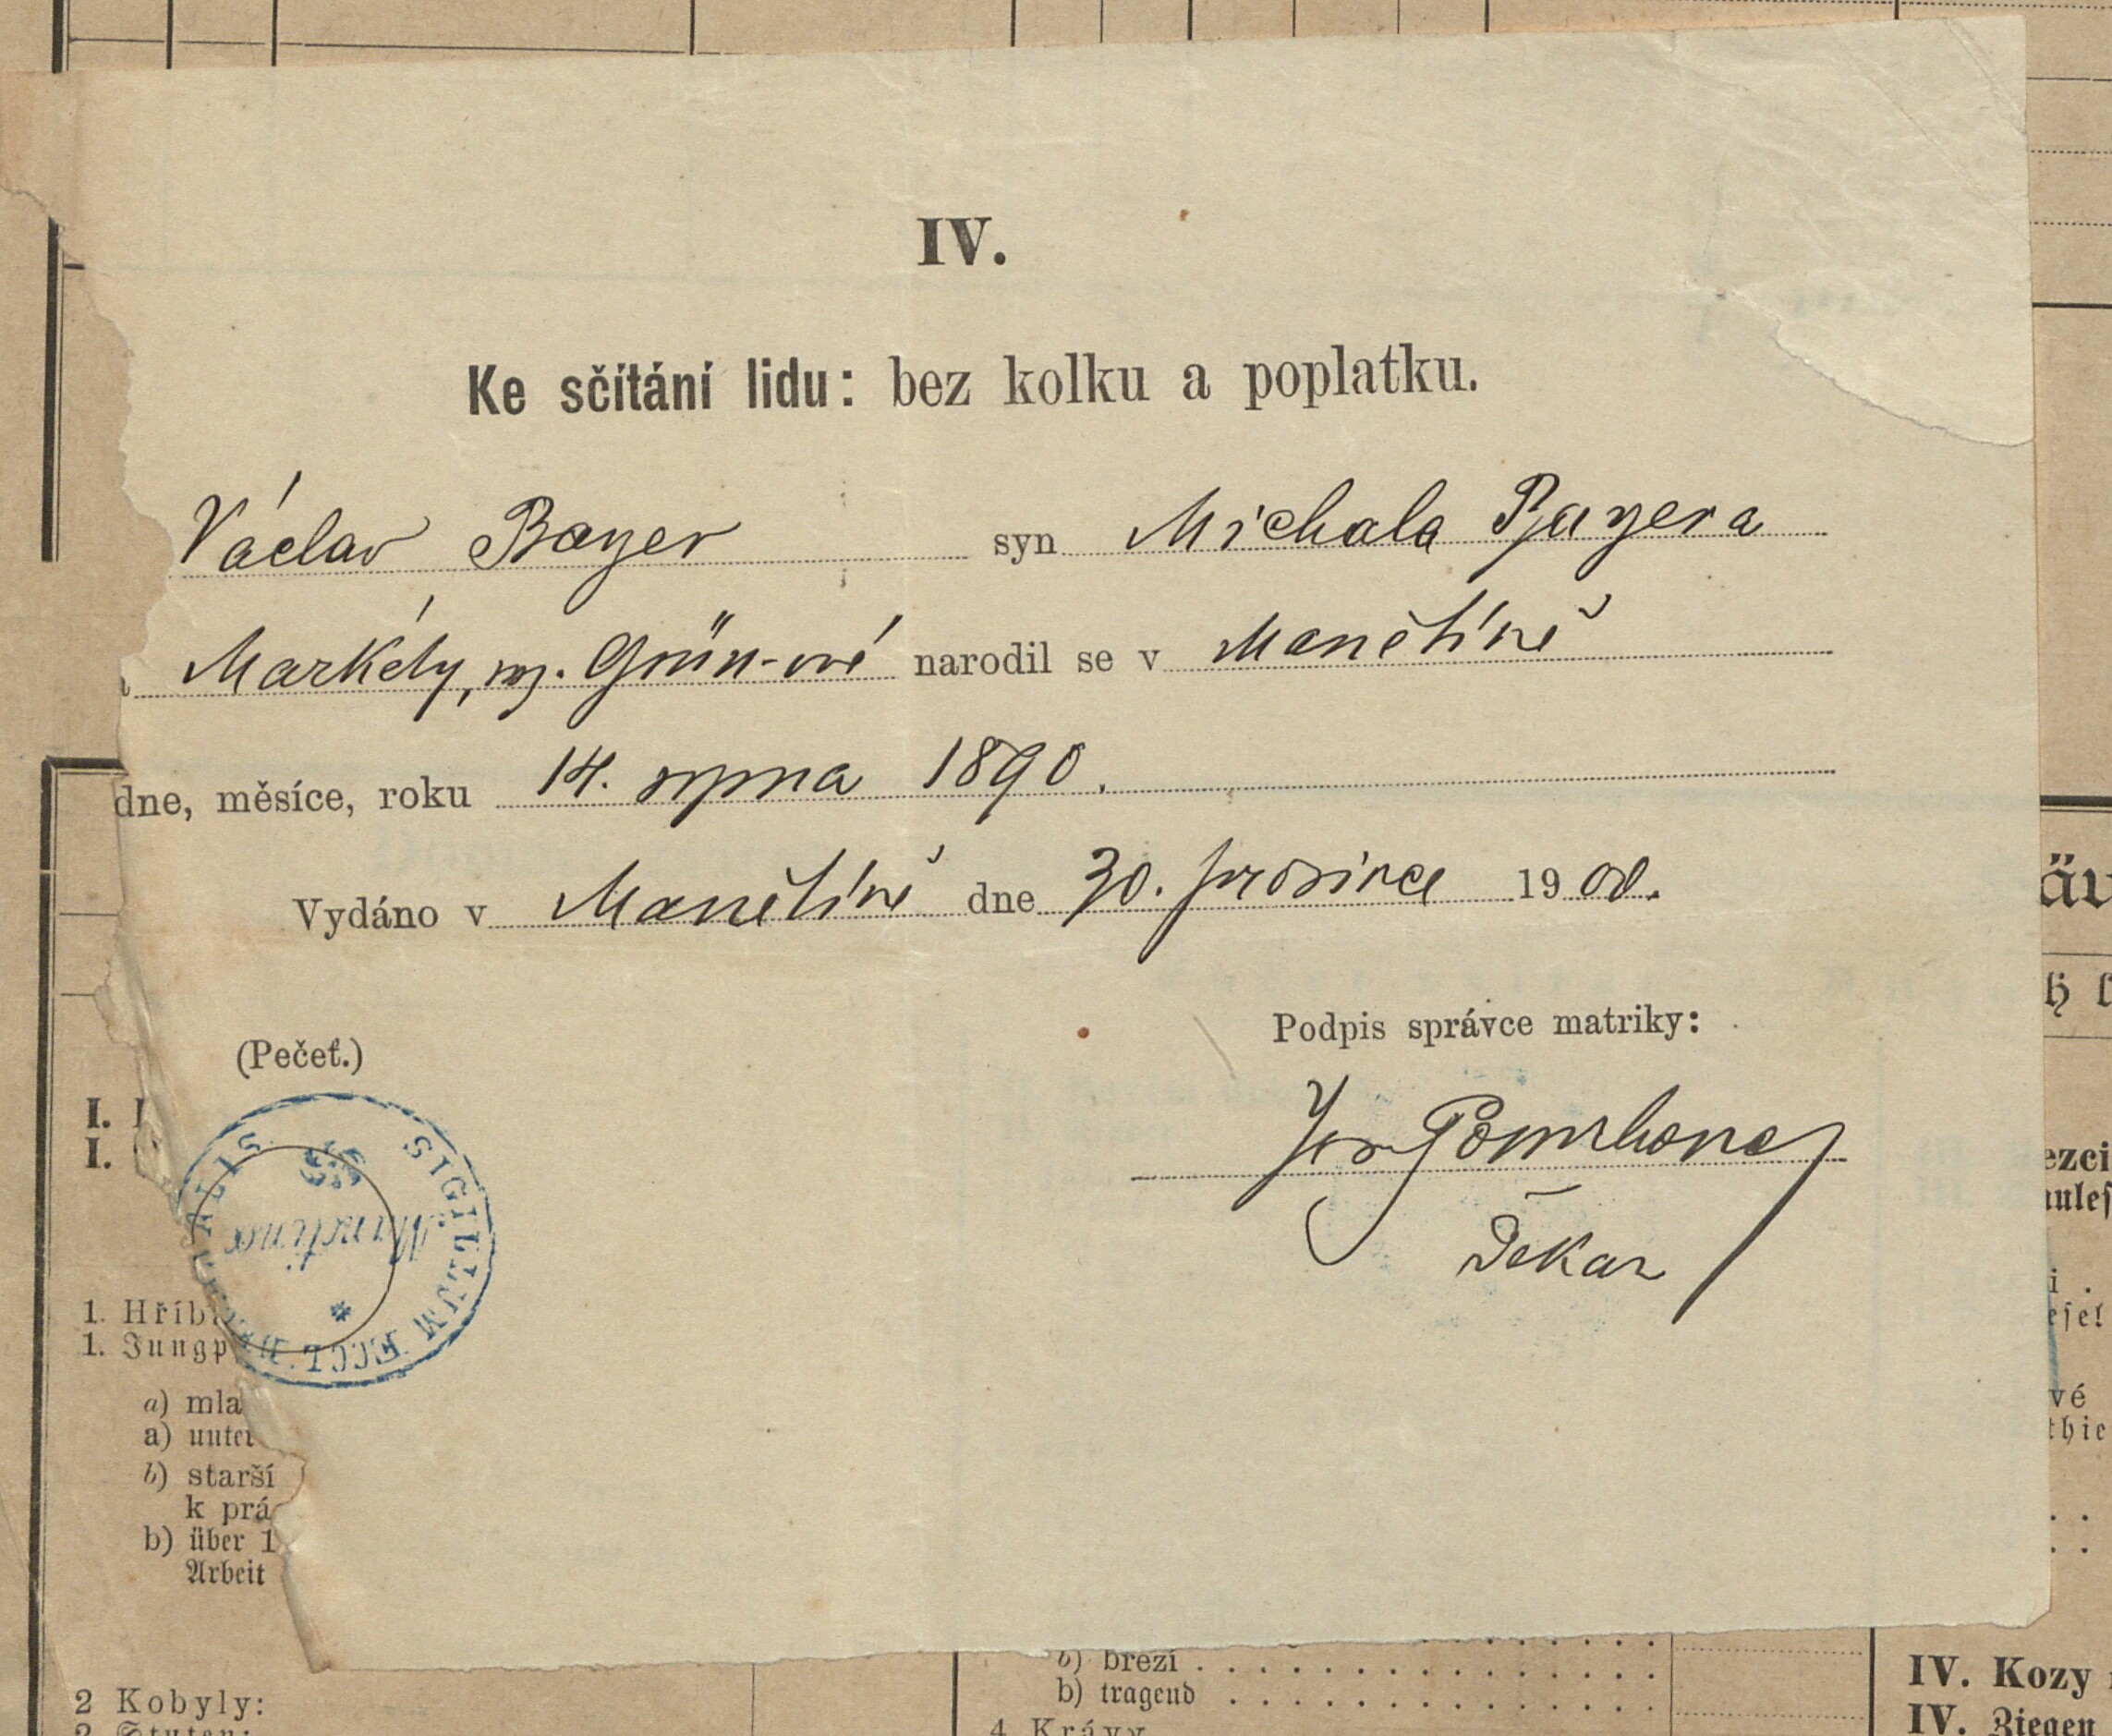 IV.
Ke sčítání lidu: bez kolku a poplatku.
Václav Bayer syn Michala Bayera
Markéty, roz. Grün-ové narodil se v Manětíně
dne, měsíce, roku 14. srpna 1890.
Vydáno v Manětíně dne 30. prosince 1900.
(Pečeť.)
Podpis správce matriky:
SIGILLUM ECCL.
děkan
I.
I.
1. Hříb
1. Jungp
a) mla
a) unter
b) starší
k prá
b) über 1
Arbeit
2 Kobyly:
2 Stuten:
b) březí
b) tragend
4 Krávy
IV. Kozy
IV. Ziegen